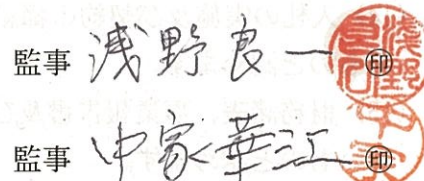 監事 浅野良一 ㊞
監事 中家華江 ㊞